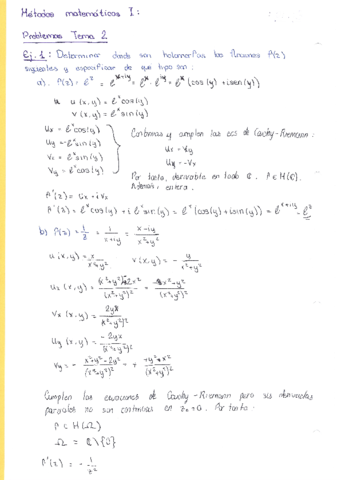 Métodos matemáticos I:
Problemas Tema 2
Ej.1: Determinar donde son holomorfas las funciones f(z)
siguientes y especificar de que tipo son:
a). f(z) = e^z = e^{x+iy} = e^x · e^{iy} = e^x (cos(y) + i sen(y))
u u(x,y) = e^x cos(y)
v(x,y) = e^x sin(y)
Ux = e^x cos(y)
Uy = -e^x sin(y)
Vx = e^x sin(y)
Vy = e^x cos(y)
Continuas y cumplen las ecs de Cauchy-Riemann:
Ux = Vy
Uy = -Vx
Por tanto, derivable en todo ℂ. f ∈ H(ℂ).
Además, entera.
f'(z) = Ux + i Vx
f'(z) = e^x cos(y) + i e^x sin(y) = e^x (cos(y) + i sin(y)) = e^{x+iy} = e^z
b) f(z) = 1/z = 1/(x+iy) = (x-iy)/(x²+y²)
u(x,y) = x/(x²+y²) v(x,y) = - y/(x²+y²)
Ux(x,y) = ((x²+y²)-2x²)/(x²+y²)² = (-x²+y²)/(x²+y²)²
Vx(x,y) = 2yx/(x²+y²)²
Uy(x,y) = -2yx/(x²+y²)²
Vy = - (x²+y²-2y²)/(x²+y²)² = + (+y²-x²)/(x²+y²)²
Cumplen las ecuaciones de Cauchy-Riemann pero sus derivadas
parciales no son continuas en z₀=0. Por tanto:
f ∈ H(Ω)
Ω = ℂ\{0}
f'(z) = - 1/z²